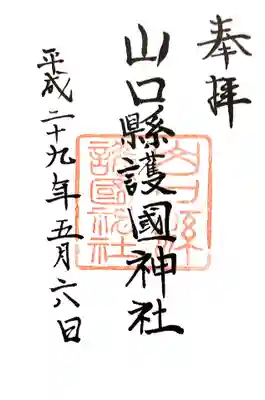 奉拝
山口縣護國神社
平成二十九年五月六日
山口縣
護國神社